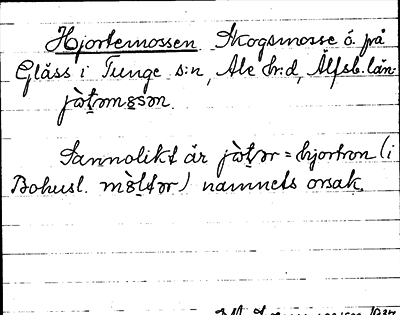 Hjortemossen Skogsmosse ö. på
Gläss i Tunge s:n, Ale h:d, Älfsb. län.
jò̀t̠əmɞsən.
Sannolikt är jò̀t̠ər = hjortron (i
Bohusl. mò̀l̠tər) namnets orsak.